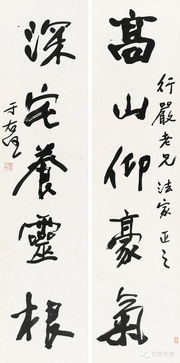 高山仰豪氣
深宅養靈根
行嚴老兄法家正之
于右任